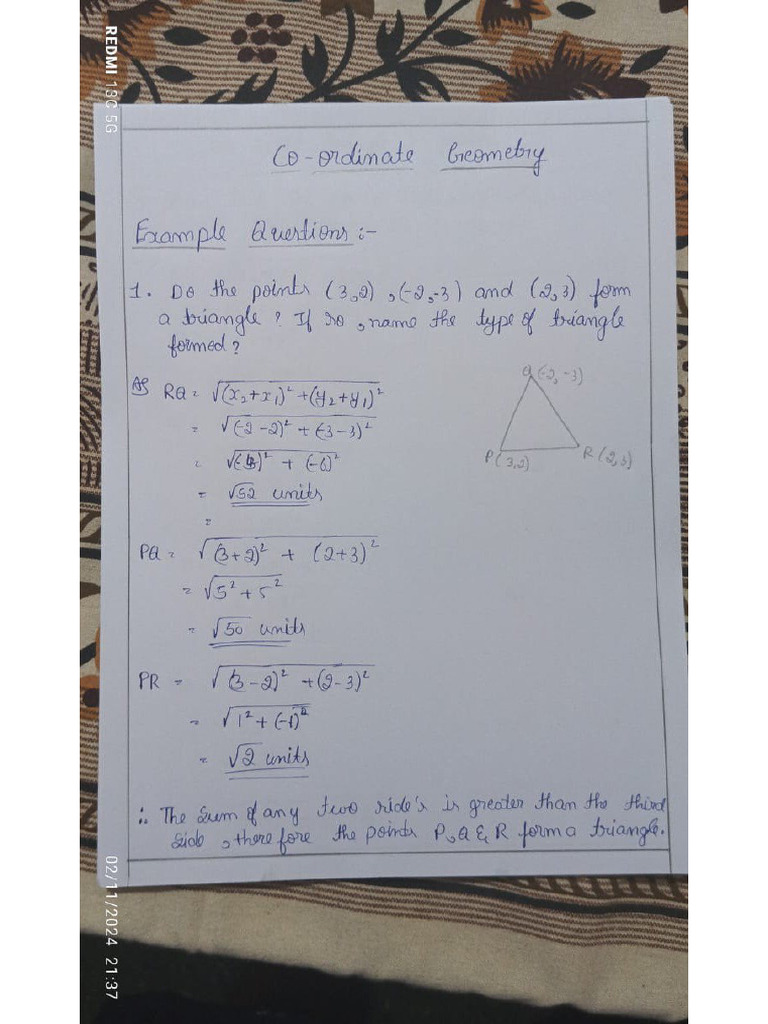 Co-ordinate Geometry
Example Questions :-
1. Do the points (3,2) , (-2,-3) and (2,3) form
a triangle ? If so , name the type of triangle
formed ?
RQ = √(x₂+x₁)² + (y₂+y₁)²
= √(-2-2)² + (-3-3)²
= √(-4)² + (-6)²
= √52 units
=
Q(-2,-3)
P(3,2)
R(2,3)
PQ = √(3+2)² + (2+3)²
= √5² + 5²
= √50 units
PR = √(3-2)² + (2-3)²
= √1² + (-1)²
= √2 units
∴ The sum of any two side's is greater than the third
side , therefore the points P, Q & R form a triangle.
REDMI 13C 5G
02/11/2024 21:37